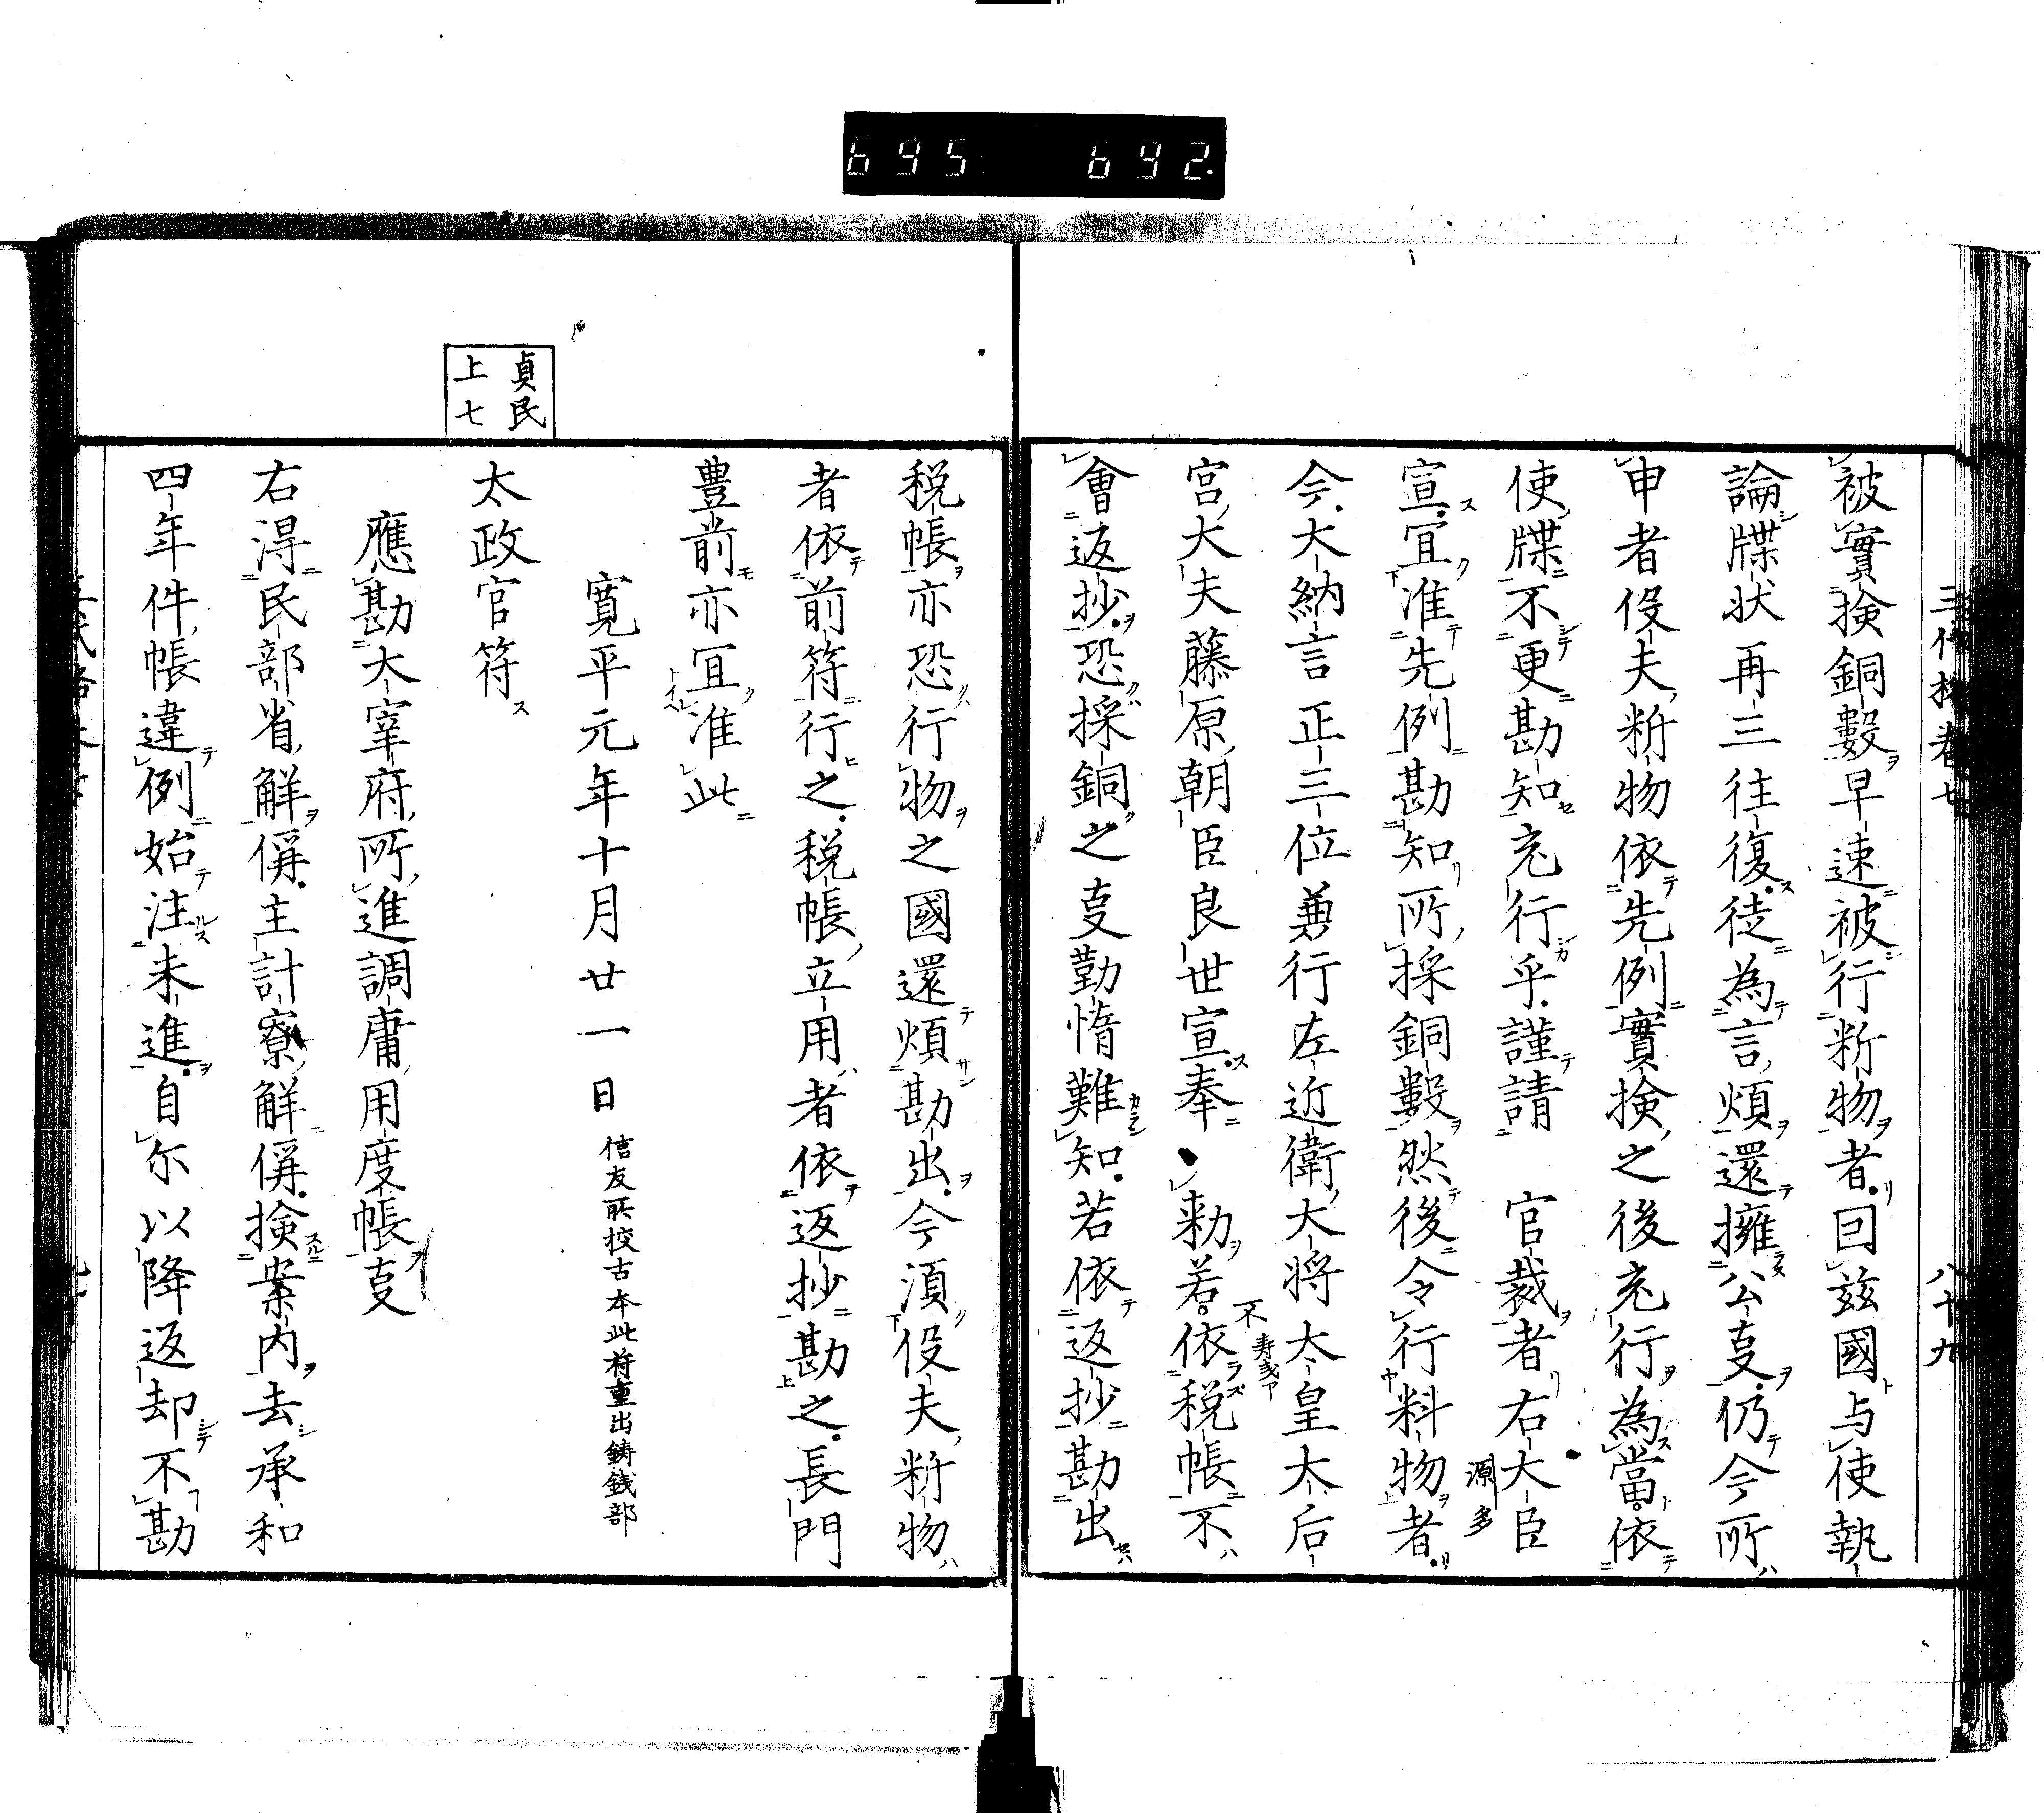 695 692.
被實検銅數早速被行新物者囙玆國与使執
論牒状再三往復徒為言煩還擁公叓仍今所
申者役夫新物依先例實検之後充行為當依
使牒不更勘知充行乎謹請 官裁者右大臣
源多
宣冝准先例勘知所採銅數然後令行料物者
今大納言正三位兼行左近衛大将太皇太后
宮大夫藤原朝臣良世宣奉 勑若依税帳不
不
會返抄恐採銅之叓勤惰難知若依返抄勘出
税帳亦恐行物之國還煩勘出今須役夫新物
者依前符行之税帳立用者依返抄勘之長門
豊前亦冝准此
寛平元年十月廿一日 信友所校古本此符重出鋳銭部
貞民
上七
太政官符
應勘大宰府所進調庸用度帳叓
右淂民部省解偁主計寮解偁検案内去承和
四年件帳違例始注未進自尓以降返却不勘